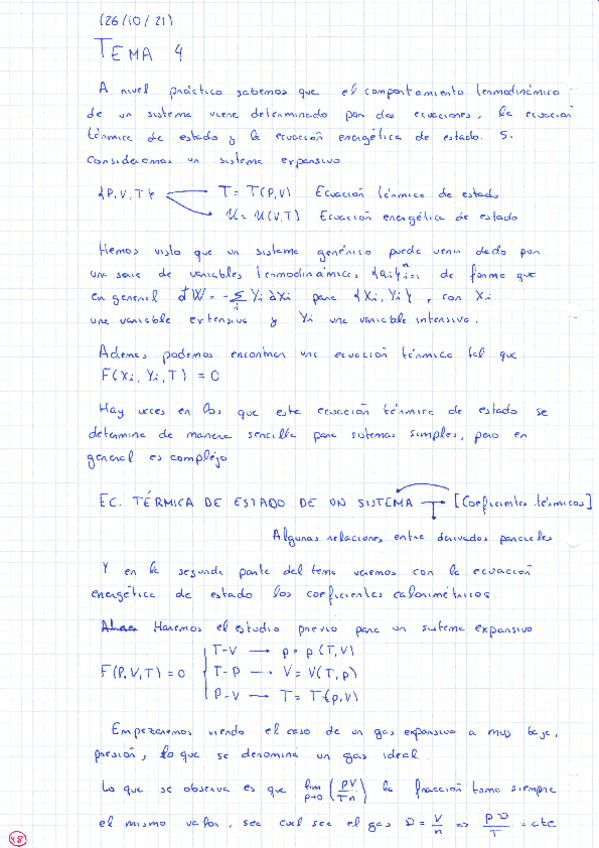 (26/10/21)
TEMA 4
A nivel práctico sabemos que el comportamiento termodinámico
de un sistema viene determinado por dos ecuaciones, la ecuación
térmica de estado y la ecuación energética de estado. S.
Consideramos un sistema expansivo
{P, V, T} → T = T(P,V) Ecuación térmica de estado
→ U = U(V,T) Ecuación energética de estado
Hemos visto que un sistema genérico puede venir dado por
una serie de variables termodinámicas {ai}ⁿi=1 de forma que
en general đW = -Σi Yi dXi para {Xi, Yi}, con Xi
una variable extensiva y Yi una variable intensiva.
Ademas podemos encontrar una ecuación térmica tal que
F(Xi, Yi, T) = 0
Hay veces en las que esta ecuación térmica de estado se
determina de manera sencilla para sistemas simples, pero en
general es complejo
EC. TÉRMICA DE ESTADO DE UN SISTEMA [Coeficientes térmicos]
Algunas relaciones entre derivadas parciales
Y en la segunda parte del tema veremos con la ecuación
energética de estado los coeficientes calorimétricos.
Haremos el estudio previo para un sistema expansivo
T-V → p = p(T,V)
F(P,V,T) = 0 T-P → V = V(T,p)
P-V → T = T(p,V)
Empezaremos viendo el caso de un gas expansivo a muy baja,
presión, lo que se denomina un gas ideal
Lo que se observa es que lim p→0 (pV/Tn) la fracción toma siempre
el mismo valor, sea cual sea el gas υ = V/n ⇒ pυ/T = cte
48